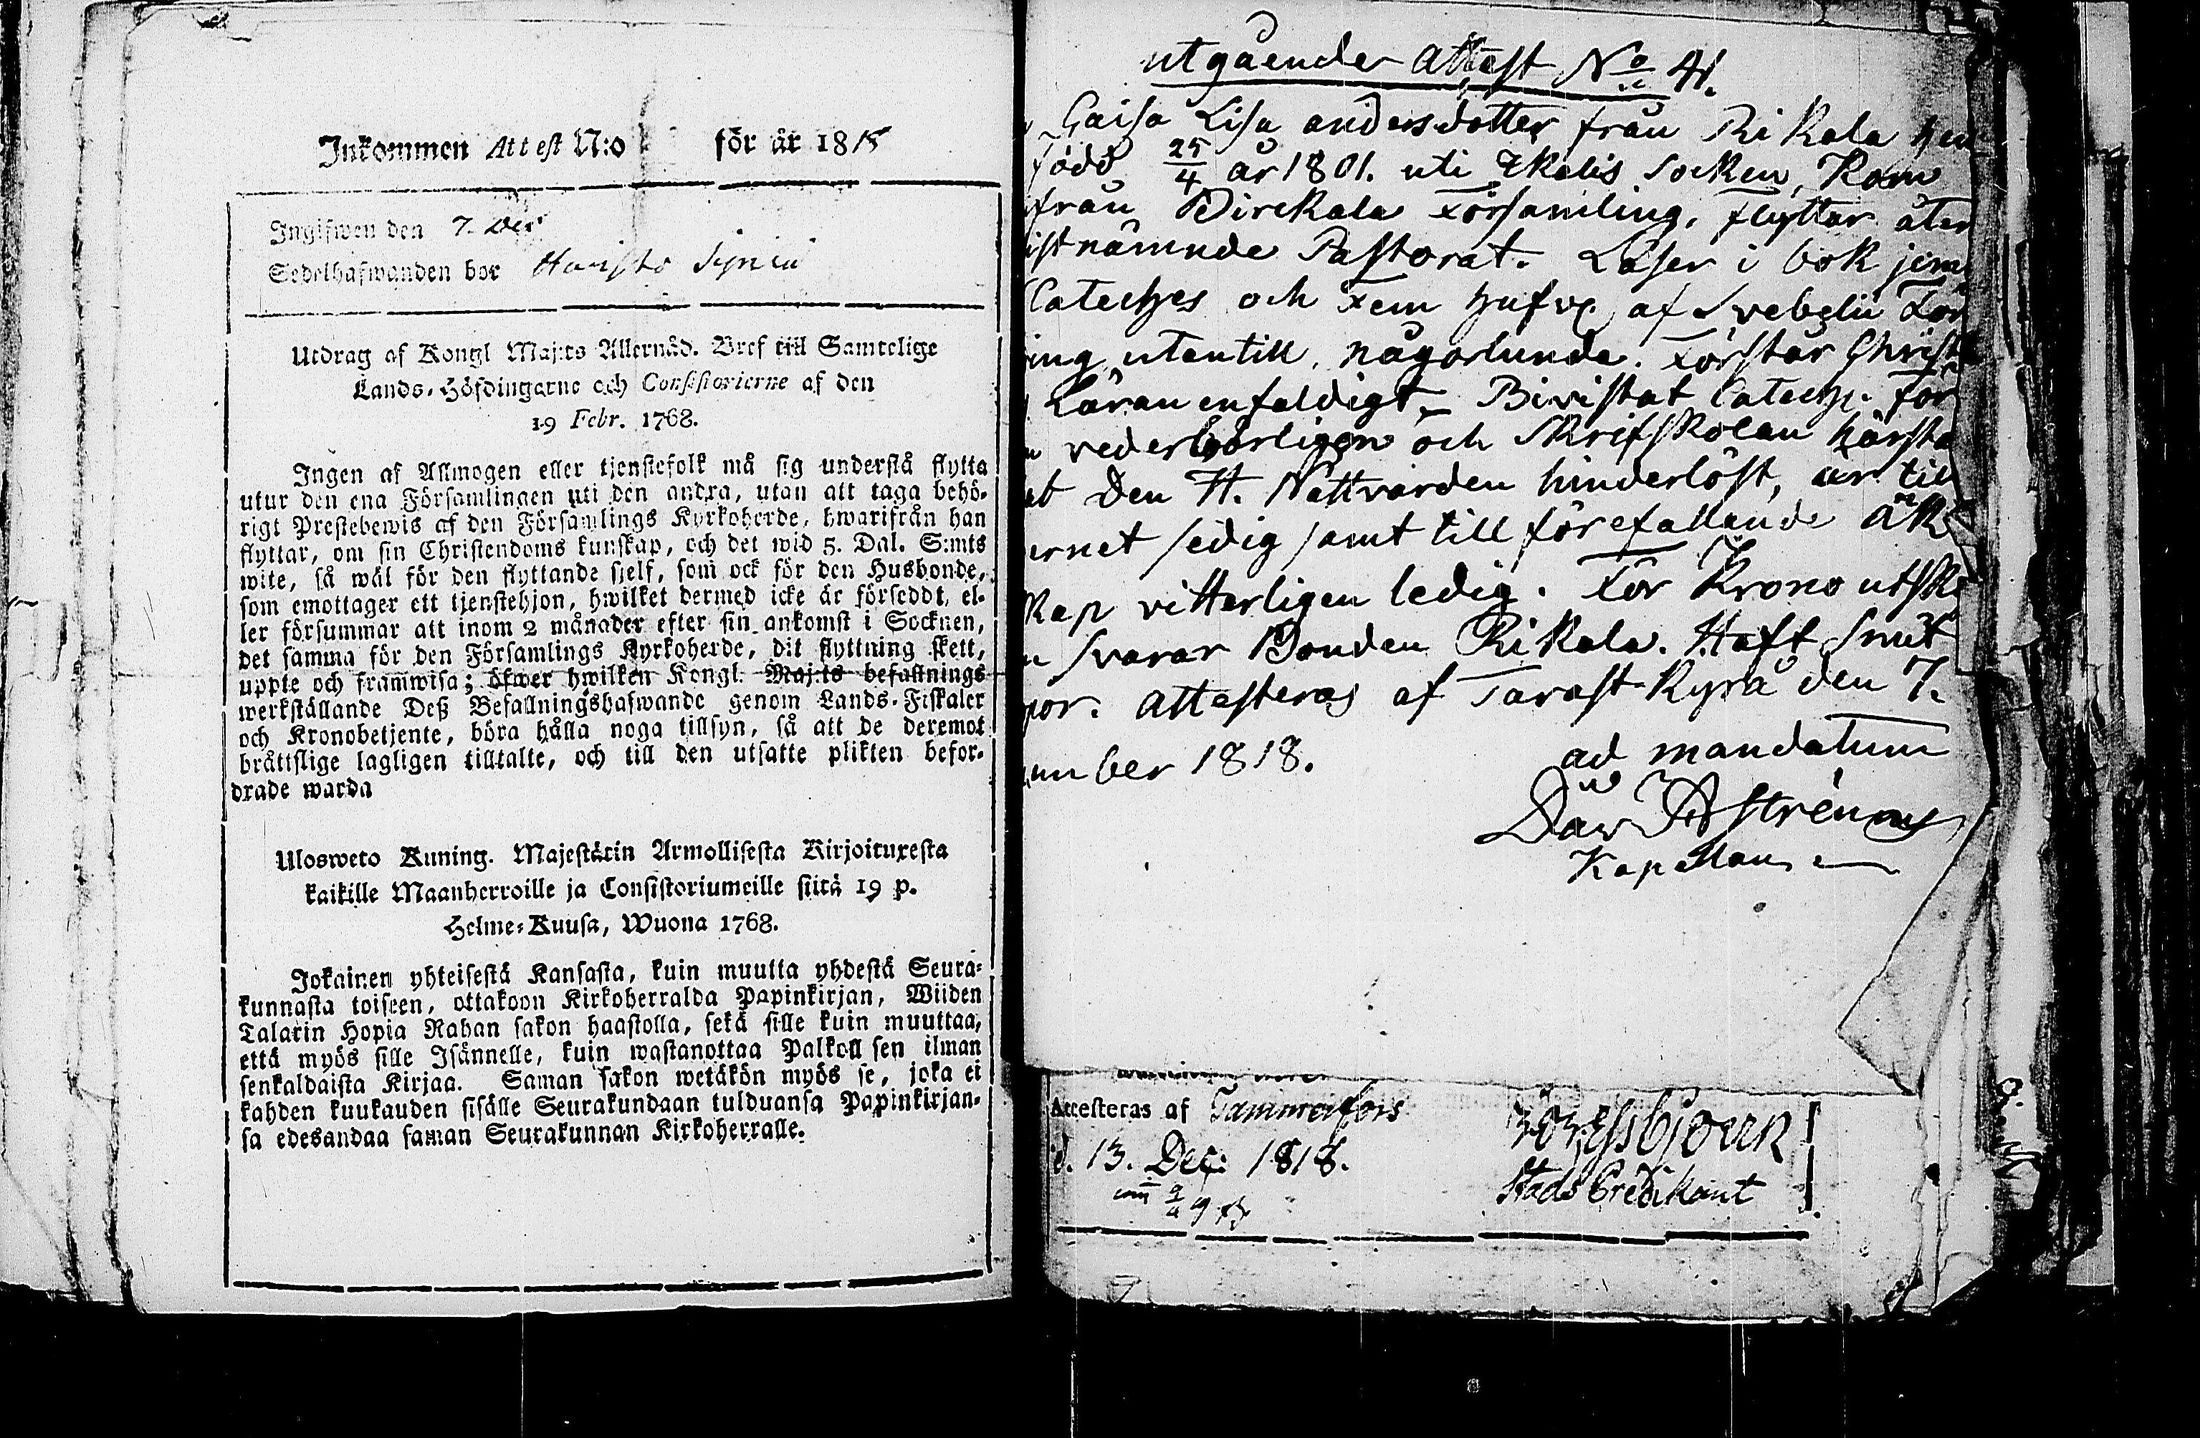 Inkommen Attest N:o för år 18
Ingifwen den 7. Dec
Sedelhafwanden bor
Utdrag af Kongl Maj:ts Allernåd. Bref till Samtelige
Lands-Höfdingarne och Consistorierne af den
19 Febr. 1768.
Ingen af Allmogen eller tjenstefolk må sig understå flytta
utur den ena Församlingen uti den andra, utan att taga behö-
rigt Prestebewis af den Församlings Kyrkoherde, hwarifrån han
flyttar, om sin Christendoms kunskap, och det wid 5. Dal. S:mts
wite, så wäl för den flyttande sjelf, som ock för den Husbonde,
som emottager ett tjenstehjon, hwilket dermed icke är försedt, el-
ler försummar att inom 2 månader efter sin ankomst i Socknen,
det samma för den Församlings Kyrkoherde, dit flyttning skett,
uppte och framwisa; öfwer hwilken Kongl. Maj:ts befallnings
werkställande Deß Befallningshafwande genom Lands-Fiskaler
och Kronobetjente, böra hålla noga tillsyn, så att de deremot
bråttslige lagligen tilltalte, och till den utsatte plikten befor-
drade warda
Ulosweto Kuning. Majestätin Armollisesta Kirjoituxesta
kaikille Maanherroille ja Consistoriumeille siitä 19 p.
Helme-Kuusa, Wuona 1768.
Jokainen yhteisestä Kansasta, kuin muutta yhdestä Seura-
kunnasta toiseen, ottakoon Kirkoherralda Papinkirjan, Wiiden
Talarin Hopia Rahan sakon haastolla, sekä sille kuin muuttaa,
että myös sille Isännelle, kuin wastanottaa Palkoll sen ilman
senkaldaista Kirjaa. Saman sakon wetäkön myös se, joka ei
kahden kuukauden sisälle Seurakundaan tulduansa Papinkirjan-
sa edesandaa saman Seurakunnan Kirkoherralle.
utgående Attest No 41.
Caisa Lisa andersdotter från Rikala
född 25/4 år 1801. uti Ikalis Socken, Kom
från Birckala Församling, flyttar åter
istnämnde Pastorat. Läser i bok jem
Catechs och Fem hufvp. af Svebelii För
ing utantill, någorlunda. Förstår Christ
Läran enfaldigt. Bivistat Catech. för
vederbörligen och Skriftskolan härsta
at Den H. Nattvarden hinderlöst, är till
ernet sedig samt till förefallande Äk
kap vitterligen ledig. För Krono utsk
svarar Bonden Rikala. Haft
por. Attesteras af Tavast-Kyrå den 7.
mber 1818. ad mandatum
Dav Astrénius
Kapellan
Attesteras af Tammerfors
d. 13. Dec: 1818.
Stads Predikant